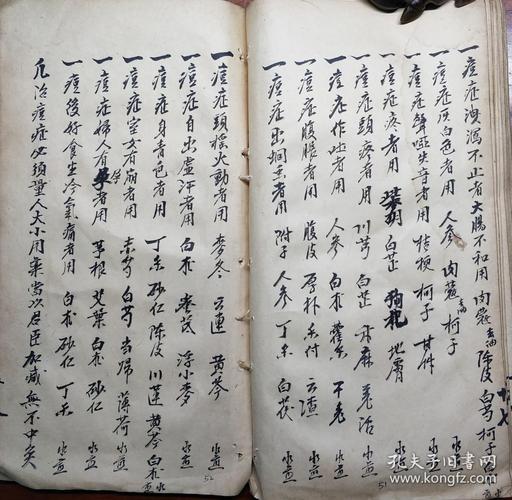 一痘症洩瀉不止者大腸不和用 肉蔻 去油 陳皮 白芍 柯子
一痘症灰白色者用 人參 肉蔻 去油 柯子
一痘症聲啞失音者用 桔梗 柯子 甘草 水煎
一痘症疼者用 白芷 地膚 水煎
一痘症頭疼者用 川芎 白芷 升麻 羌活 水煎
一痘症作吐者用 人參 白朮 藿香 干姜 水煎
一痘症腹脹者用 腹皮 厚朴 香付 云查 水煎
一痘症出者用 附子 人參 丁香 白茯 水煎
一痘症頭搖火動者用 麥冬 云連 黃芩 水煎
一痘症自出虛汗者用 白朮 黃芪 浮小麥 水煎
一痘症身青色者用 丁香 砂仁 陳皮 川蓮 黃芩 白朮 水煎
一痘症室女有崩者用 赤芍 白芍 當歸 薄荷 水煎
一痘症婦人有孕者用 芋根 艾葉 白朮 砂仁 水煎
一痘後好食生冷氣痛者用 白朮 砂仁 丁香 水煎
凡治痘症必須量人大小用藥當以君臣加減無不中矣
51
52
孔夫子旧书网